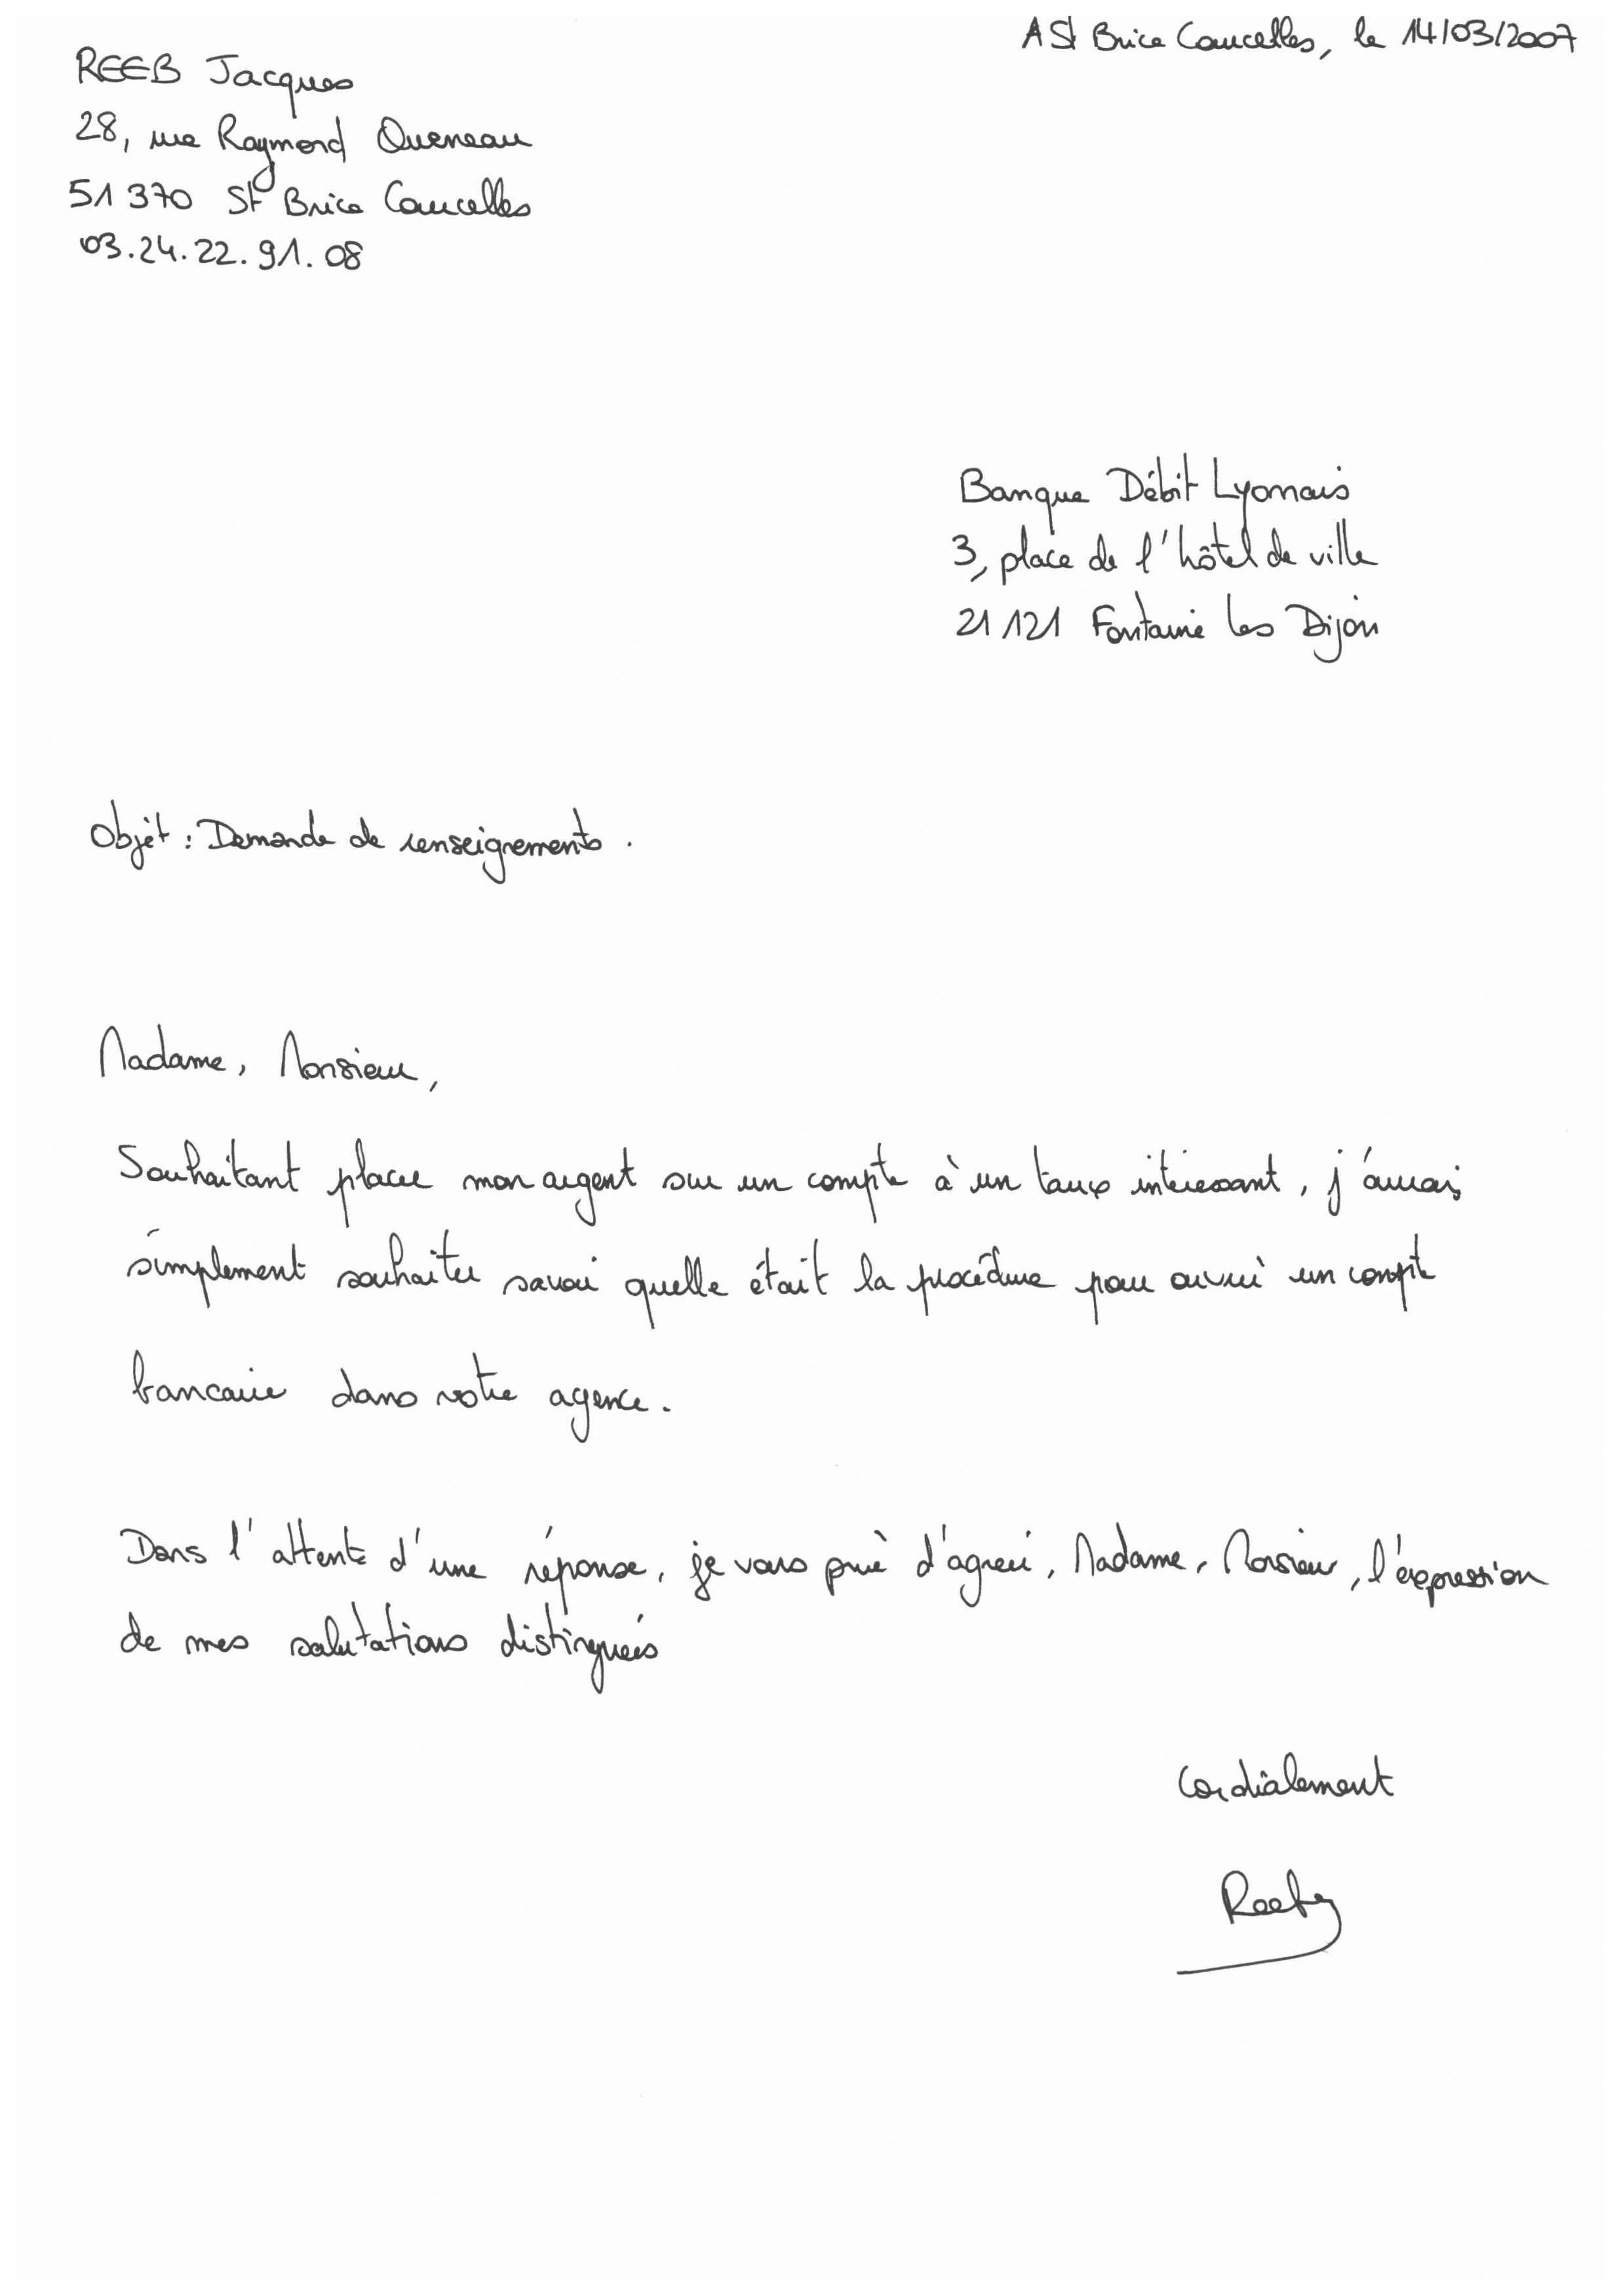 A St Brice Courcelles, le 14/03/2007
REEB Jacques
28, rue Raymond Queneau
51 370 St Brice Courcelles
03.24.22.91.08
Banque Débit Lyonnais
3, place de l'hôtel de ville
21 121 Fontaine les Dijon
Objet : Demande de renseignements.
Madame, Monsieur,
Souhaitant placer mon argent sur un compte à un taux intéressant, j'aurais
simplement souhaiter savoir quelle était la procédure pour ouvrir un compte
bancaire dans votre agence.
Dans l'attente d'une réponse, je vous prie d'agréer, Madame, Monsieur, l'expression
de mes salutations distinguées
Cordialement
Reeb